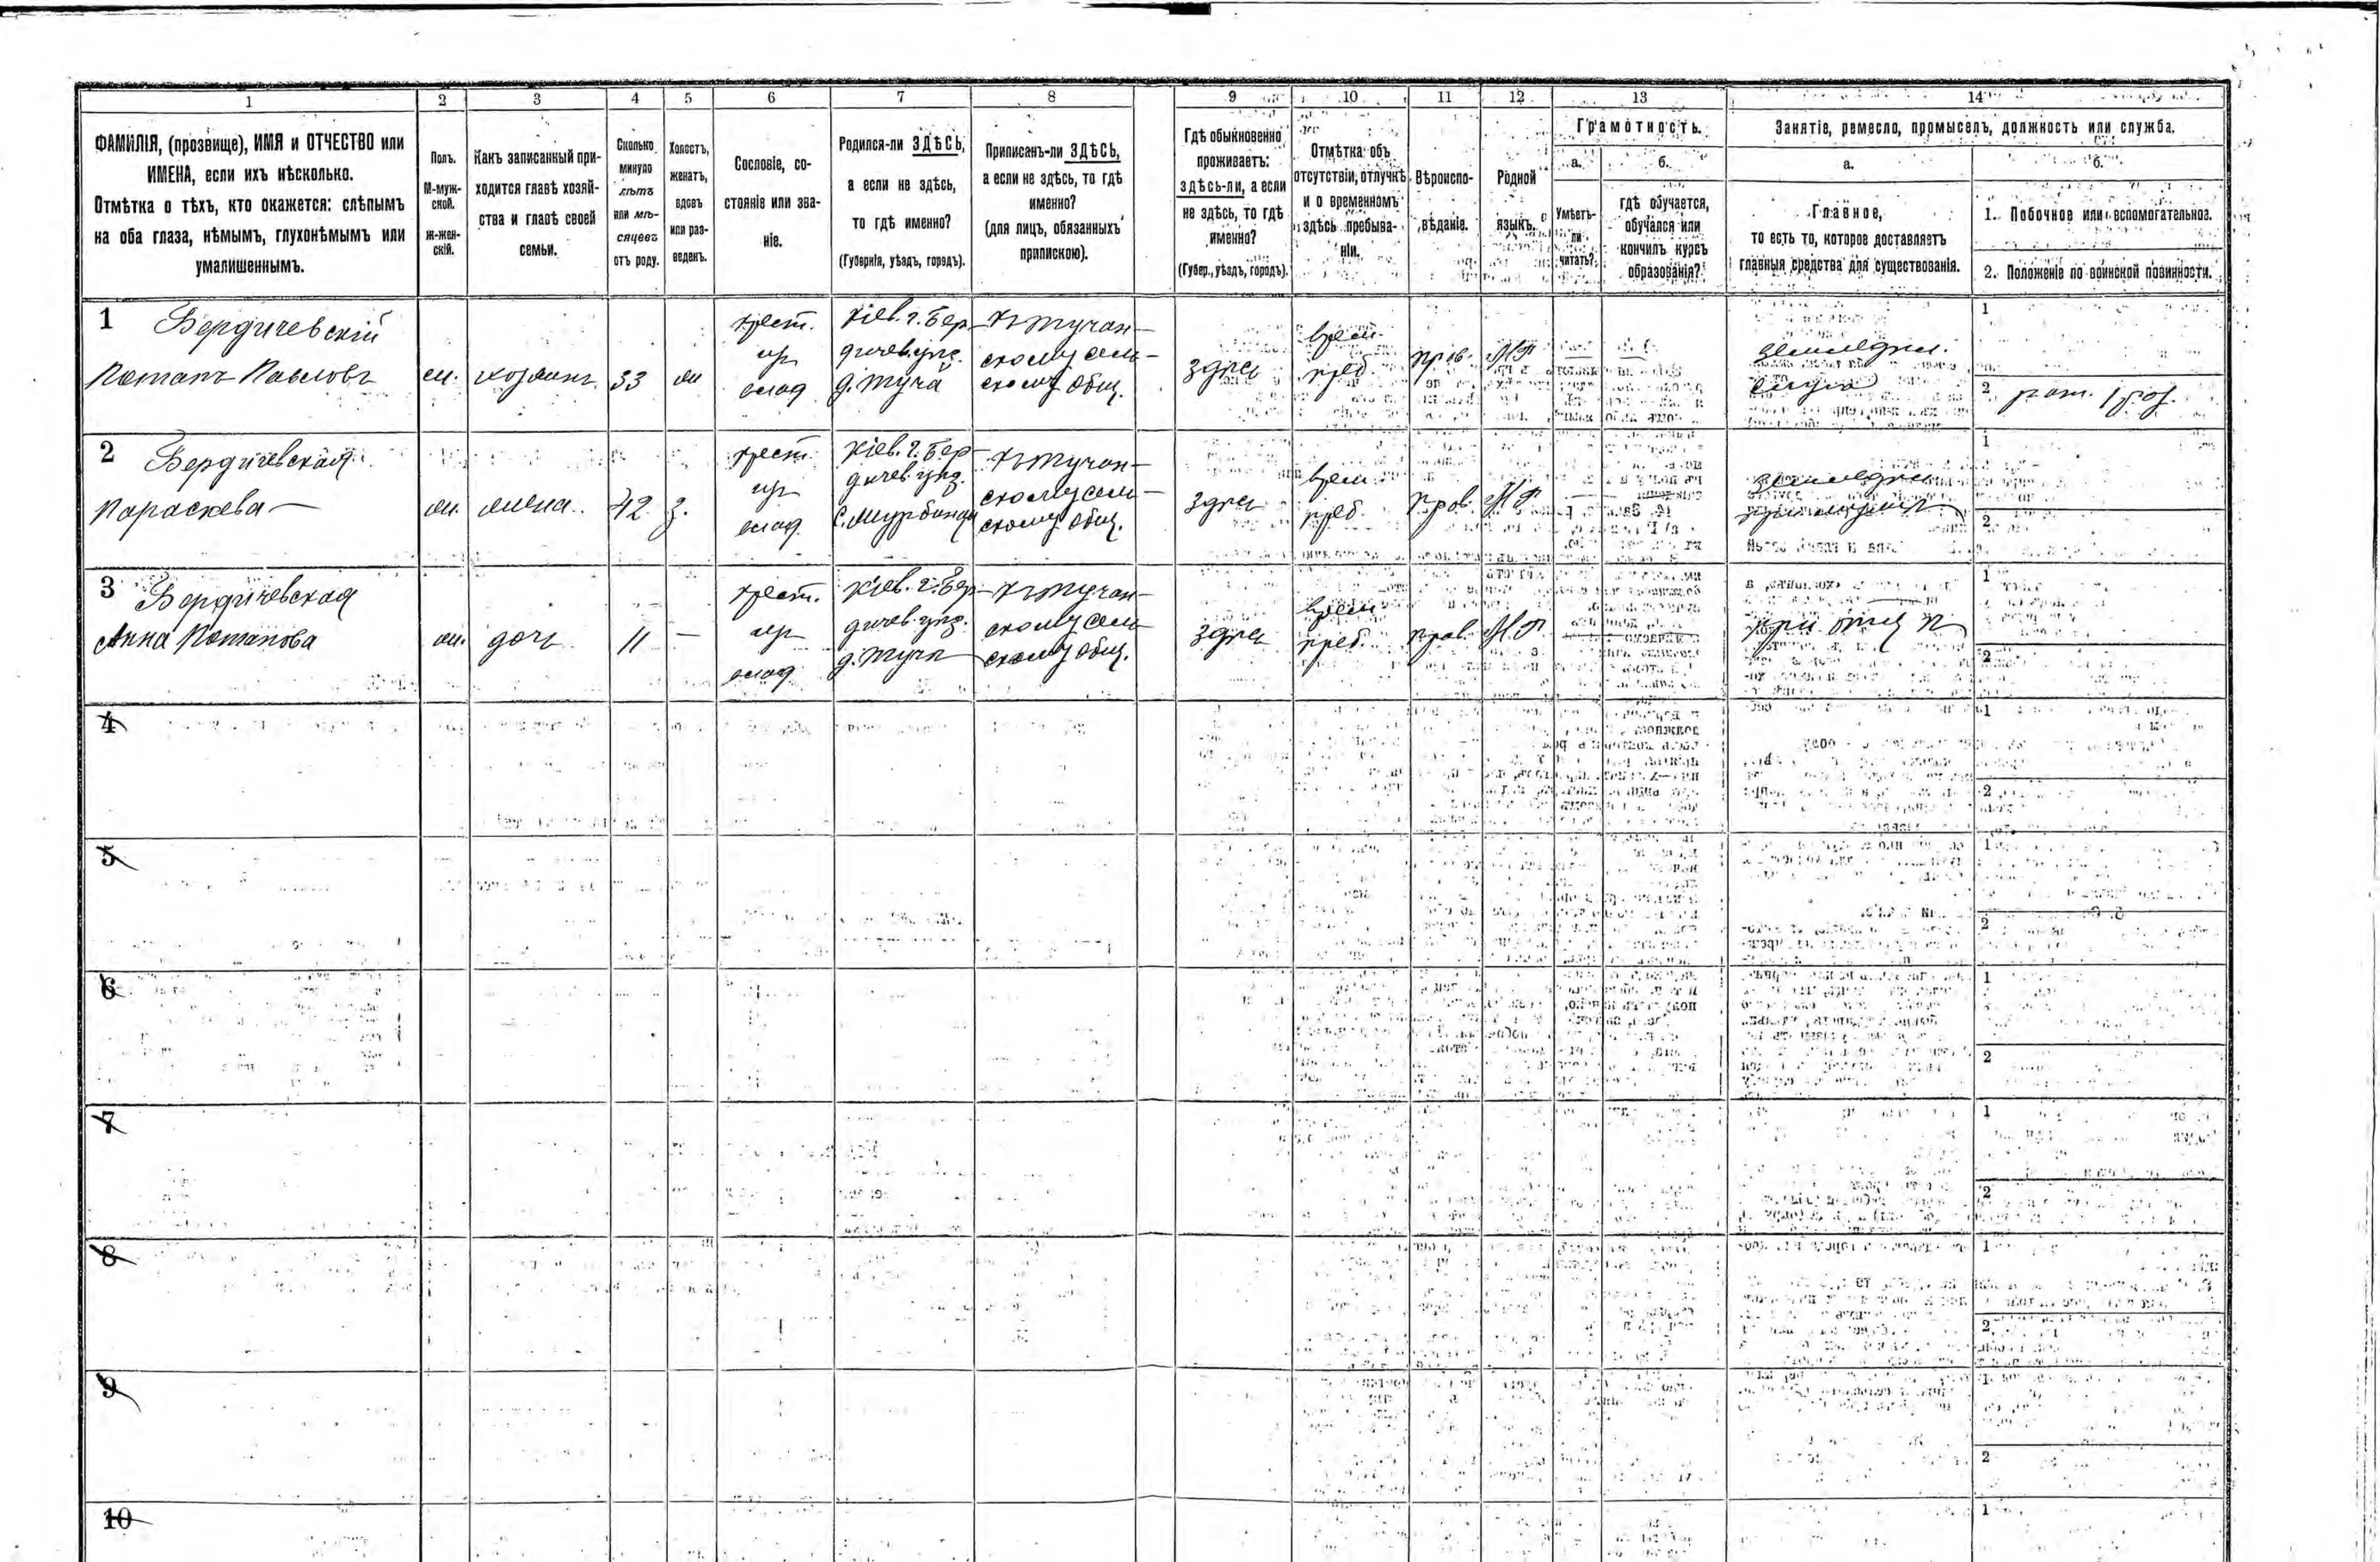 1 2 3 4 5 6 7 8 9 10 11 12 13 14
ФАМИЛІЯ, (прозвище), ИМЯ и ОТЧЕСТВО или
ИМЕНА, если ихъ нѣсколько.
Отмѣтка о тѣхъ, кто окажется: слѣпымъ
на оба глаза, нѣмымъ, глухонѣмымъ или
умалишеннымъ.
Полъ.
М-муж-
ской.
Ж-жен-
скій.
Какъ записанный при-
ходится главѣ хозяй-
ства и главѣ своей
семьи.
Сколько
минуло
лѣтъ
или мѣ-
сяцевъ
отъ роду.
Холостъ,
женатъ,
вдовъ
или раз-
веденъ.
Сословіе, со-
стояніе или зва-
ніе.
Родился-ли ЗДѢСЬ,
а если не здѣсь,
то гдѣ именно?
(Губернія, уѣздъ, городъ).
Приписанъ-ли ЗДѢСЬ,
а если не здѣсь, то гдѣ
именно?
(для лицъ, обязанныхъ
припискою).
Гдѣ обыкновенно
проживаетъ:
здѣсь-ли, а если
не здѣсь, то гдѣ
именно?
(Губер., уѣздъ, городъ).
Отмѣтка объ
отсутствіи, отлучкѣ
и о временномъ
здѣсь пребыва-
ніи.
Вѣроиспо-
вѣданіе.
Родной
языкъ.
Грамотность.
а.
Умѣетъ-
ли
читать?
б.
гдѣ обучается,
обучался или
кончилъ курсъ
образованія?
Занятіе, ремесло, промыселъ, должность или служба.
а.
Главное,
то есть то, которое доставляетъ
главныя средства для существованія.
б.
1. Побочное или вспомогательное.
2. Положеніе по воинской повинности.
1 Бердичевскій
Потапъ Павловъ
м.
хозяинъ
33
ж
крест.
из
влад
Кіев. г. Бер-
дичев. уѣз.
д. Туча
Къ Тучан-
скому сель-
скому общ.
здѣсь
врем.
преб.
прав.
М.Р
земледѣл.
1
2
2 Бердичевская
Параскева —
ж.
жена.
42
з.
крест.
из
влад.
Кіев. г. Бер-
дичев. уѣз.
Къ Тучан-
скому сель-
скому общ.
здѣсь
врем
преб.
прав.
М.Р.
земледѣл.
1
2
3 Бердичевская
Анна Потапова
ж.
дочь
11
—
крест.
из
влад
Кіев. г. Бер-
дичев. уѣз.
д. Туча
Къ Тучан-
скому сель-
скому общ.
здѣсь
врем
преб.
прав.
М.Р.
при отцѣ
1
2
4
1
2
5
1
2
6
1
2
7
1
2
8
1
2
9
1
2
10
1